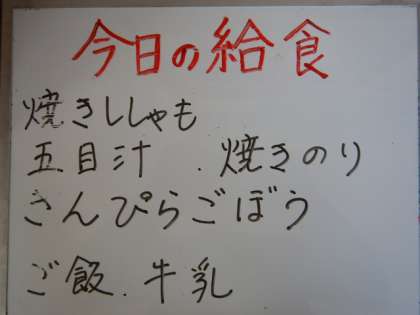 今日の給食
焼きししゃも
五目汁 . 焼きのり
きんぴらごぼう
ご飯. 牛乳